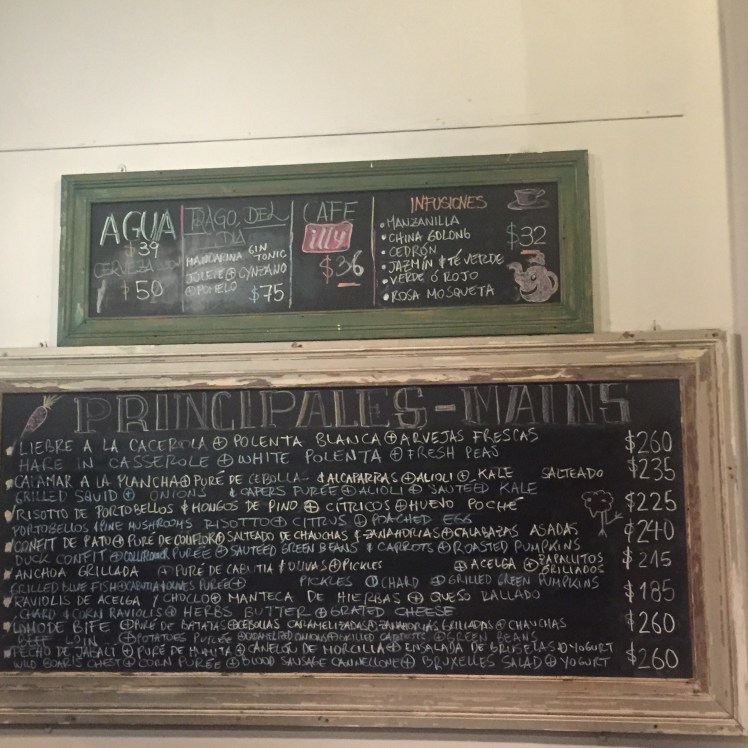 AGUA
$39
CERVEZA
$50
TRAGO DEL
DIA
MANDARINA GIN
TONIC
JULEPE ⊕ CYNZANO
⊕ POMELO
$75
CAFE
illy
$36
INFUSIONES
• MANZANILLA
• CHINA OOLONG
• CEDRÓN
• JAZMÍN & TÉ VERDE
• VERDE Ó ROJO
• ROSA MOSQUETA
$32
PRINCIPALES - MAINS
LIEBRE A LA CACEROLA ⊕ POLENTA BLANCA ⊕ ARVEJAS FRESCAS $260
HARE IN CASSEROLE ⊕ WHITE POLENTA ⊕ FRESH PEAS
CALAMAR A LA PLANCHA ⊕ PURÉ DE CEBOLLA & ALCAPARRAS ⊕ ALIOLI ⊕ KALE SALTEADO $235
GRILLED SQUID ⊕ ONIONS & CAPERS PURÉE ⊕ ALIOLI ⊕ SAUTEED KALE
RISOTTO DE PORTOBELLOS & HONGOS DE PINO ⊕ CÍTRICOS ⊕ HUEVO POCHÉ $225
PORTOBELLOS & PINE MUSHROOMS RISOTTO ⊕ CITRUS ⊕ POACHED EGG
CONFIT DE PATO ⊕ PURÉ DE COLIFLOR ⊕ SALTEADO DE CHAUCHAS & ZANAHORIAS ⊕ CALABAZAS ASADAS $240
DUCK CONFIT ⊕ PURÉE ⊕ SAUTEED GREEN BEANS & CARROTS ⊕ ROASTED PUMPKINS
ANCHOA GRILLADA ⊕ PURÉ DE CABUTIA & OLIVAS ⊕ PICKLES ⊕ ACELGA ⊕ ZAPALLITOS GRILLADOS $215
GRILLED BLUE FISH ⊕ CABUTIA & OLIVES PURÉE ⊕ PICKLES ⊕ CHARD ⊕ GRILLED GREEN PUMPKINS
RAVIOLIS DE ACELGA Y CHOCLO ⊕ MANTECA DE HIERBAS ⊕ QUESO RALLADO $185
CHARD & CORN RAVIOLIS ⊕ HERBS BUTTER ⊕ GRATED CHEESE
LOMO DE BIFE ⊕ PURÉ DE BATATAS ⊕ CEBOLLAS CARAMELIZADAS ⊕ ZANAHORIAS GRILLADAS ⊕ CHAUCHAS $260
LOIN ⊕ POTATOES PURÉE ⊕ CARAMELIZED ONIONS ⊕ GRILLED CARROTS ⊕ GREEN BEANS
PECHO DE JABALÍ ⊕ PURÉ DE ⊕ CANELÓN DE MORCILLA ⊕ ENSALADA DE BRUSELAS ⊕ YOGURT $260
WILD BOAR'S CHEST ⊕ CORN PURÉE ⊕ BLOOD SAUSAGE CANNELLONE ⊕ BRUXELLES SALAD ⊕ YOGURT